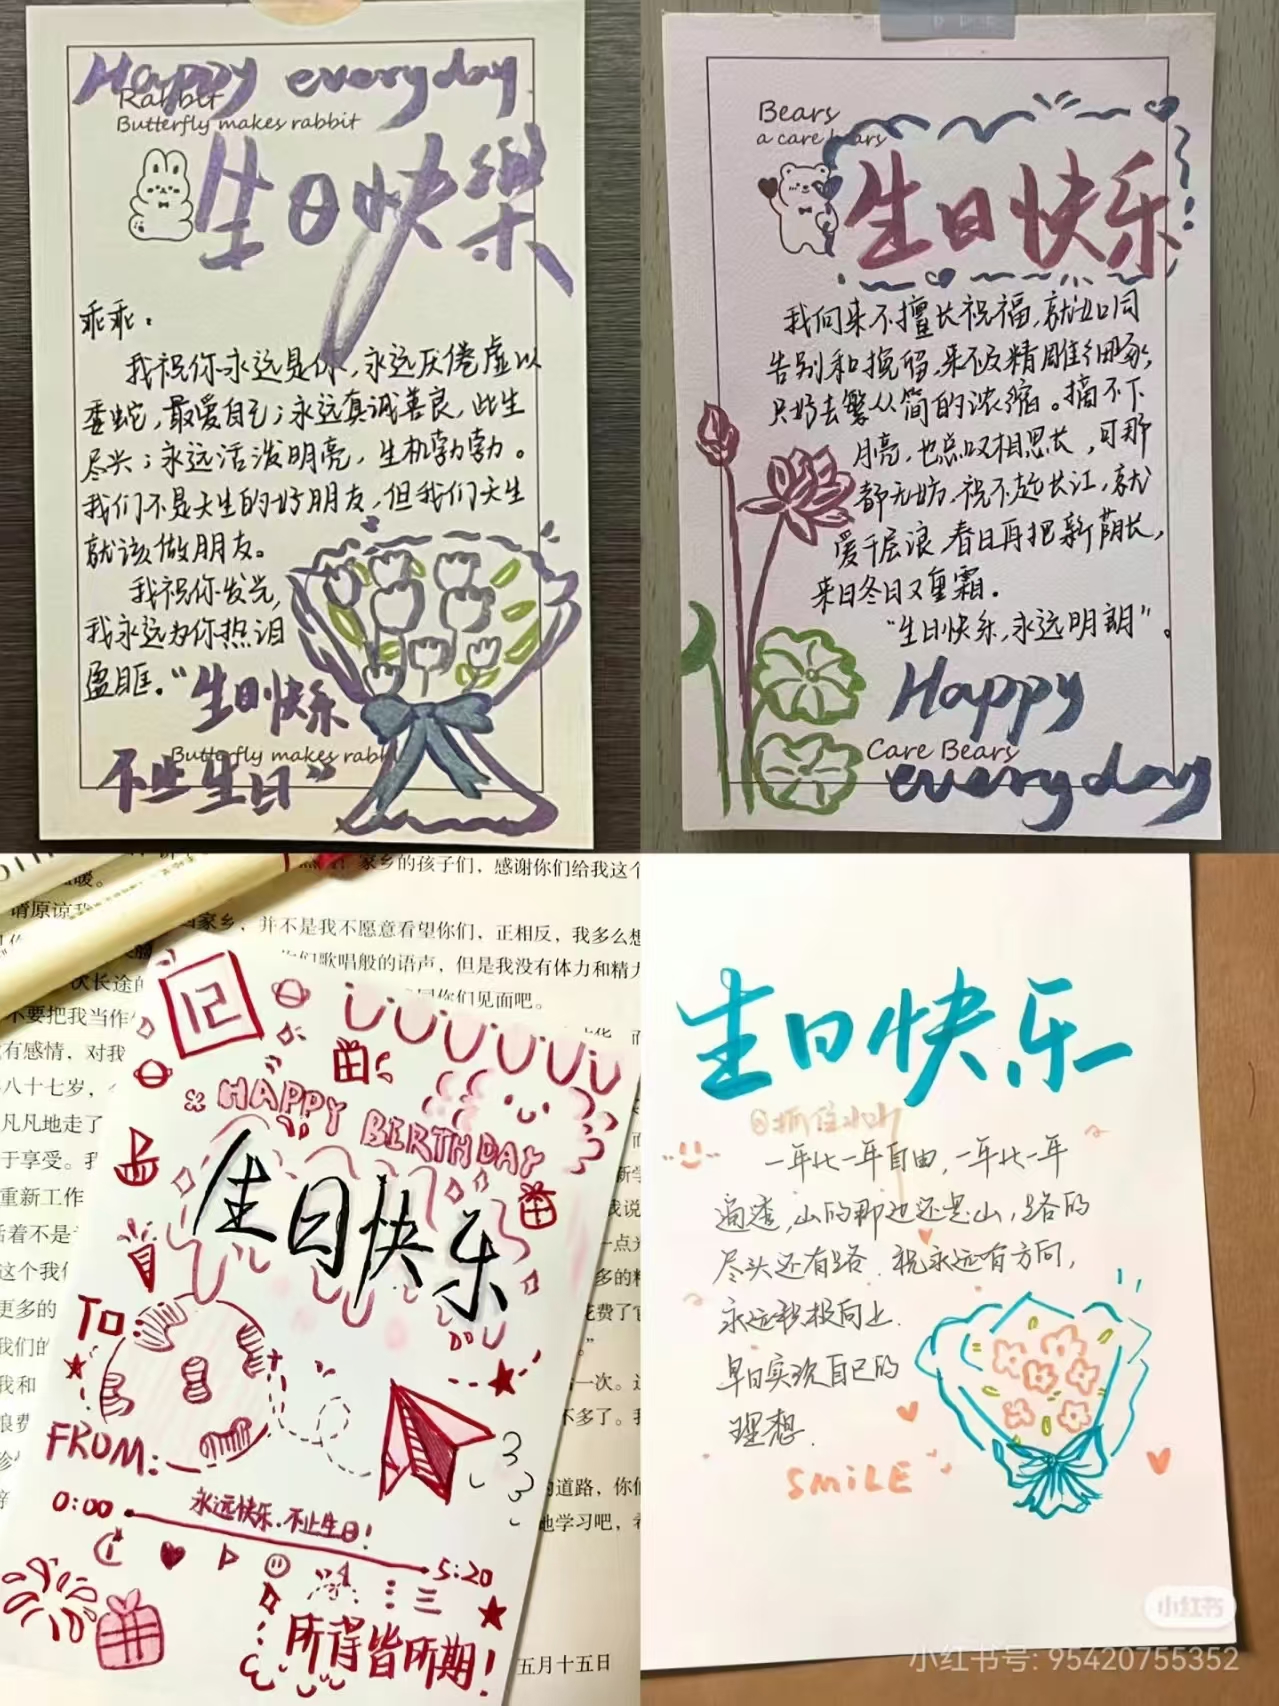 Happy everyday
Rabbit
Butterfly makes rabbit
生日快樂
乖乖：
我祝你永远是你，永远厌倦虚以
委蛇，最爱自己；永远真诚善良，此生
尽兴；永远活泼明亮，生机勃勃。
我们不是天生的好朋友，但我们天生
就该做朋友。
我祝你发光，
我永远为你热泪
盈眶。“生日快乐
Butterfly makes rabbi
不止生日”
Bears
a care bears
生日快乐
我向来不擅长祝福，就如同
告别和挽留，来不及精雕细琢，
只好去繁从简的浓缩。摘不下
月亮，也总叹相思长，可那
都无妨，祝不赴长江，就
爱千层浪 春日再把新荫长，
来日冬日又重霜。
“生日快乐，永远明朗”。
Happy
Care Bears
everyday
家乡的孩子们，感谢你们给我这个
请原谅我
家乡，并不是我不愿意看望你们，正相反，我多么想
们歌唱般的语声，但是我没有体力和精力
次长途的
同你们见面吧。
不要把我当作
有感情，对我
八十七岁，
凡凡地走了
于享受。我
重新工作
活着不是
这个我们
更多的
我们的
我和
浪费
12
HAPPY BIRTHDAY
生日快乐
TO
FROM:
0:00
永远快乐.不止生日!
5:20
所得皆所期!
一点光
多的精
花费了它
一次。这
不多了。我
的道路，你们
地学习吧，
五月十五日
生日快乐
@抓住水水
一年比一年自由，一年比一年
通透，山的那边还是山，路的
尽头还有路．祝永远有方向，
永远积极向上．
早日实现自己的
理想．
SMiLE
小红书
小红书号: 95420755352